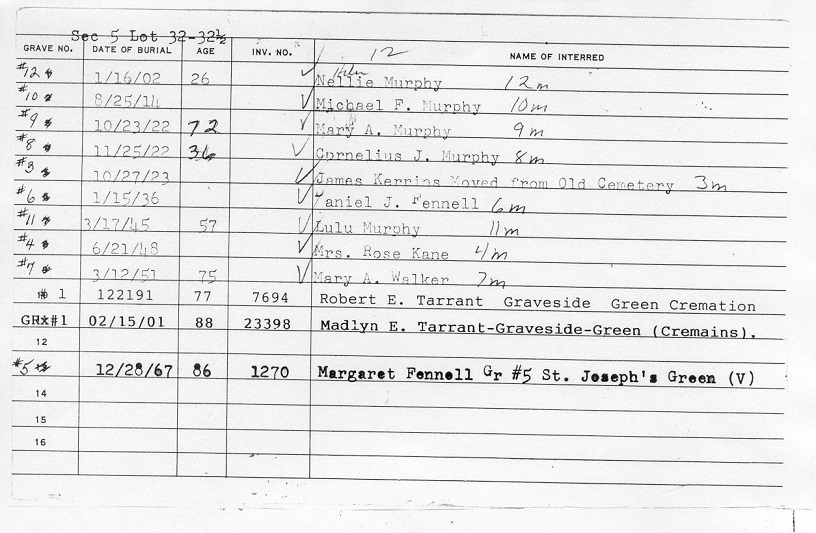 Sec 5 Lot 32-32½
GRAVE NO. DATE OF BURIAL AGE INV. NO. 12 NAME OF INTERRED
#12 1/16/02 26 ✓ Nellie Murphy 12m
#10 8/25/14 ✓ Michael F. Murphy 10m
#9 10/23/22 72 ✓ Mary A. Murphy 9m
#8 11/25/22 36 ✓ Cornelius J. Murphy 8m
#3 10/27/23 ✓ James Kerrins Moved from Old Cemetery 3m
#6 1/15/36 ✓ Daniel J. Fennell 6m
#11 3/17/45 57 ✓ Lulu Murphy 11m
#4 6/21/48 ✓ Mrs. Rose Kane 4m
#7 3/12/51 75 ✓ Mary A. Walker 7m
# 1 122191 77 7694 Robert E. Tarrant Graveside Green Cremation
GRX#1 02/15/01 88 23398 Madlyn E. Tarrant-Graveside-Green (Cremains).
12
#5 12/28/67 86 1270 Margaret Fennell Gr #5 St. Joseph's Green (V)
14
15
16